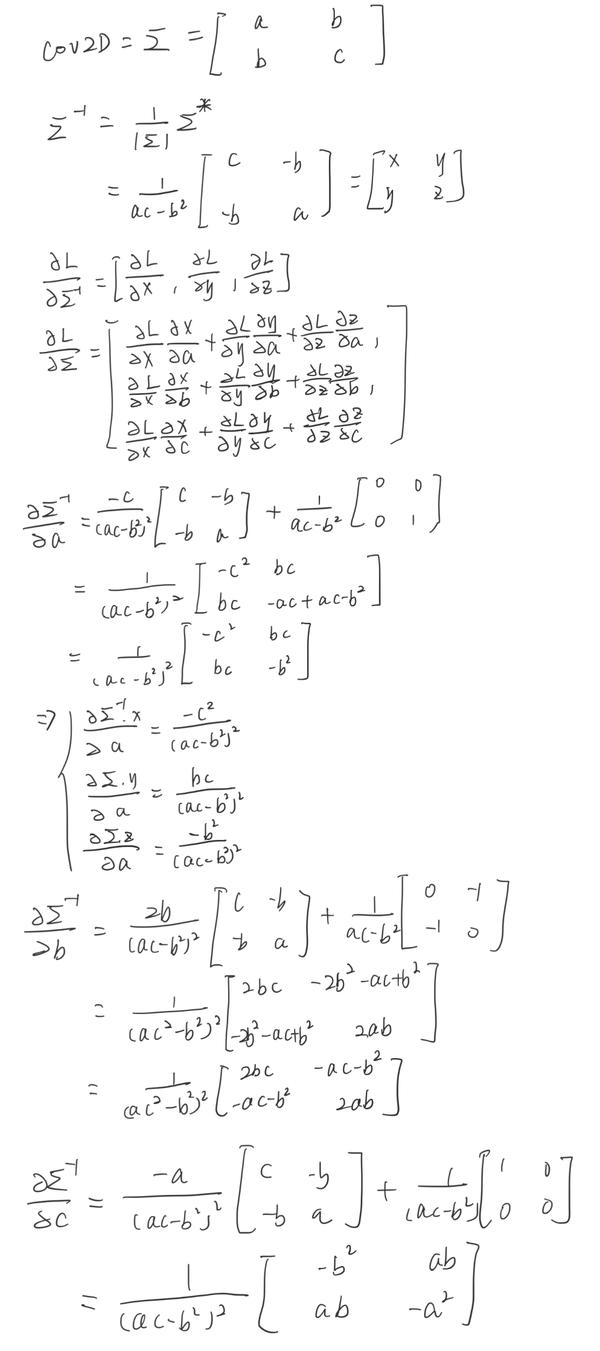 Cov2D = Σ = [ a b ; b c ]
Σ⁻¹ = 1/|Σ| Σ*
= 1/(ac-b²) [ c -b ; -b a ] = [ x y ; y z ]
∂L/∂Σ⁻¹ = [ ∂L/∂x , ∂L/∂y , ∂L/∂z ]
∂L/∂Σ = [ ∂L/∂x ∂x/∂a + ∂L/∂y ∂y/∂a + ∂L/∂z ∂z/∂a ,
∂L/∂x ∂x/∂b + ∂L/∂y ∂y/∂b + ∂L/∂z ∂z/∂b ,
∂L/∂x ∂x/∂c + ∂L/∂y ∂y/∂c + ∂L/∂z ∂z/∂c ]
∂Σ⁻¹/∂a = -c/(ac-b²)² [ c -b ; -b a ] + 1/(ac-b²) [ 0 0 ; 0 1 ]
= 1/(ac-b²)² [ -c² bc ; bc -ac+ac-b² ]
= 1/(ac-b²)² [ -c² bc ; bc -b² ]
⇒ { ∂Σ⁻¹.x/∂a = -c²/(ac-b²)²
∂Σ.y/∂a = bc/(ac-b²)²
∂Σz/∂a = -b²/(ac-b²)²
∂Σ⁻¹/∂b = 2b/(ac-b²)² [ c -b ; -b a ] + 1/(ac-b²) [ 0 -1 ; -1 0 ]
= 1/(ac²-b²)² [ 2bc -2b²-ac+b² ; -2b²-ac+b² 2ab ]
= 1/(ac²-b²)² [ 2bc -ac-b² ; -ac-b² 2ab ]
∂Σ⁻¹/∂c = -a/(ac-b²)² [ c -b ; -b a ] + 1/(ac-b²) [ 1 0 ; 0 0 ]
= 1/(ac-b²)² [ -b² ab ; ab -a² ]